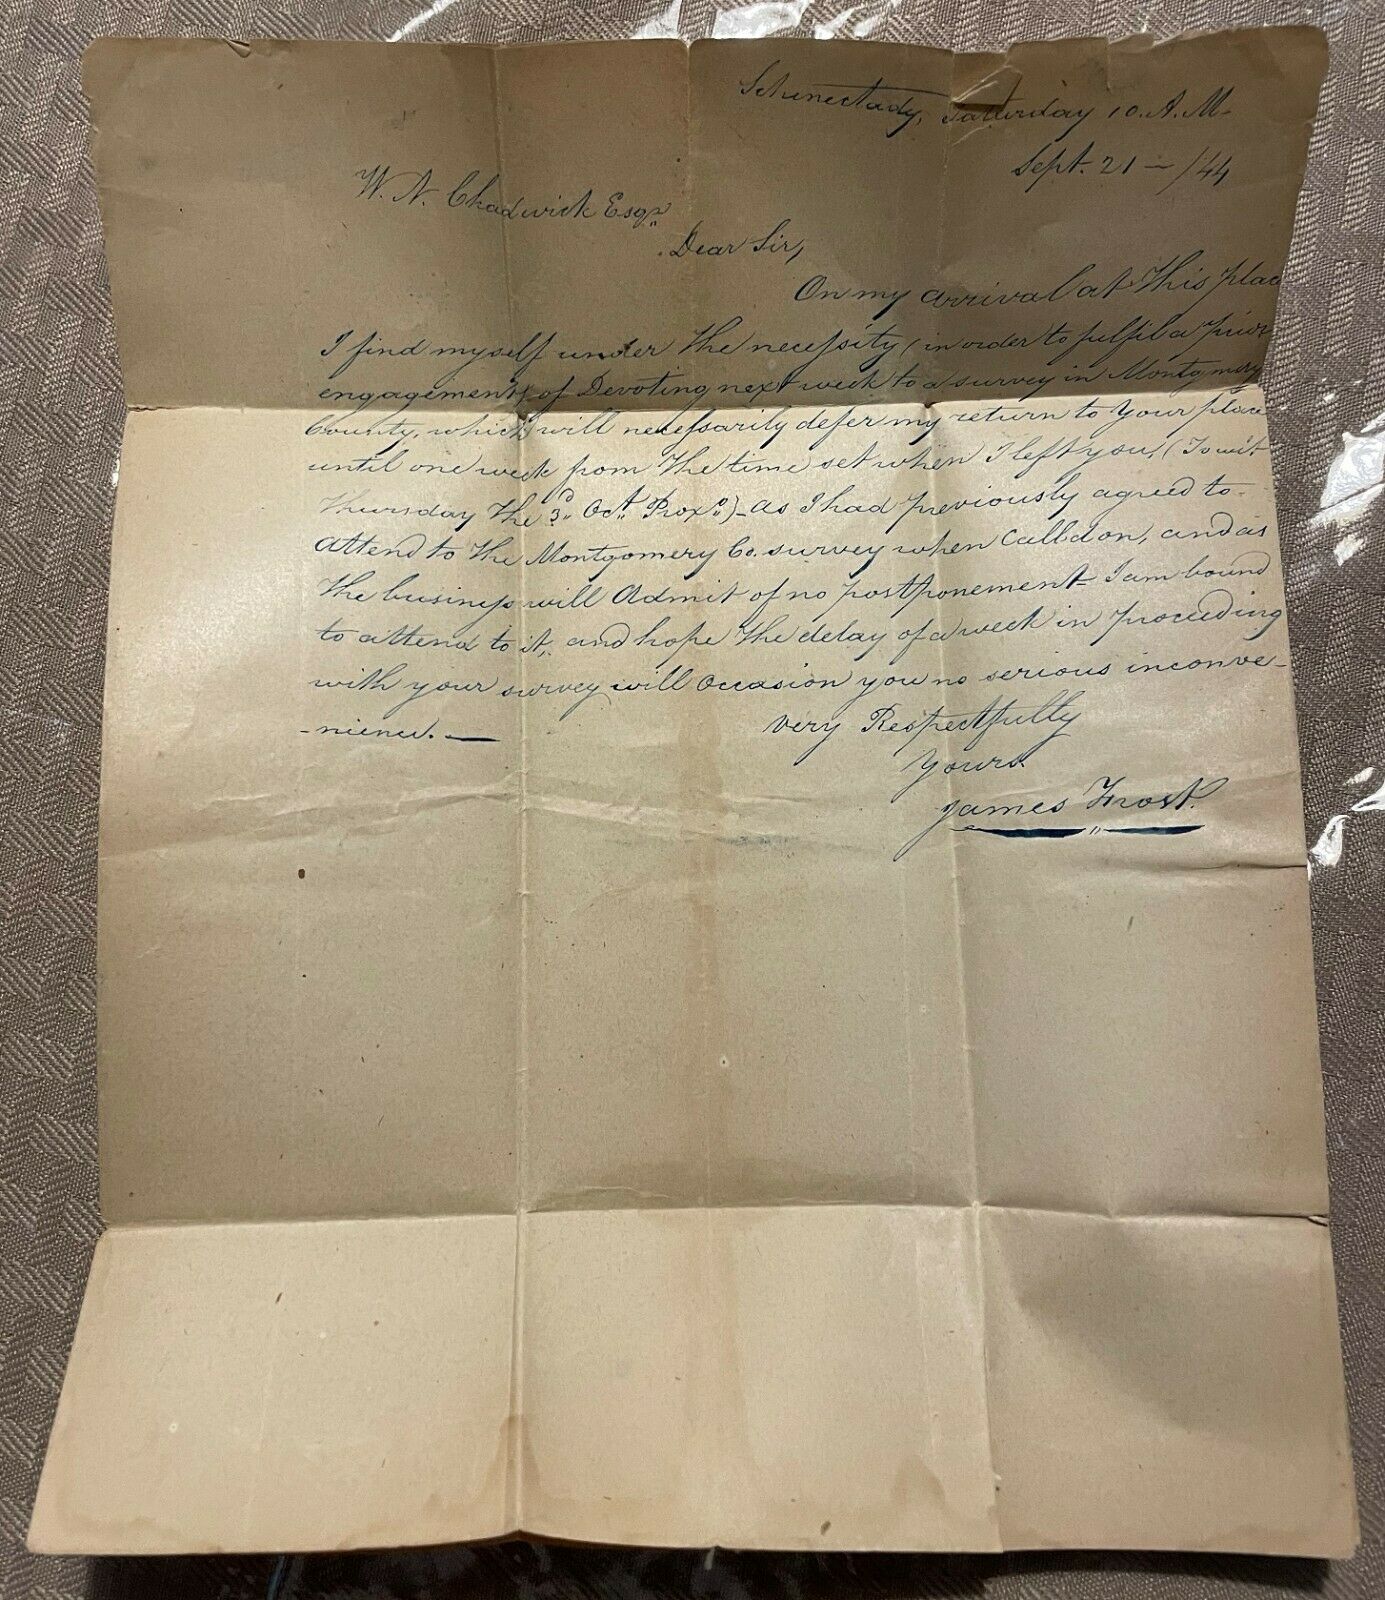 Schenectady, Saturday 10. A. M.
Sept. 21 — /44
W. N. Chadwick Esqr.
Dear Sir,
On my arrival at this place
I find myself under the necessity (in order to fulfil a prior
engagement) of Devoting next week to a survey in Montgomery
County, which will necessarily defer my return to your place
until one week from the time set when I left you, (To wit
Thursday the 3d Oct. Proxo.) – as I had previously agreed to
attend to the Montgomery Co. survey when called on, and as
the business will admit of no postponement I am bound
to attend to it, and hope the delay of a week in proceeding
with your survey will occasion you no serious inconve-
-nience. —
Very Respectfully
Yours.
James Frost.